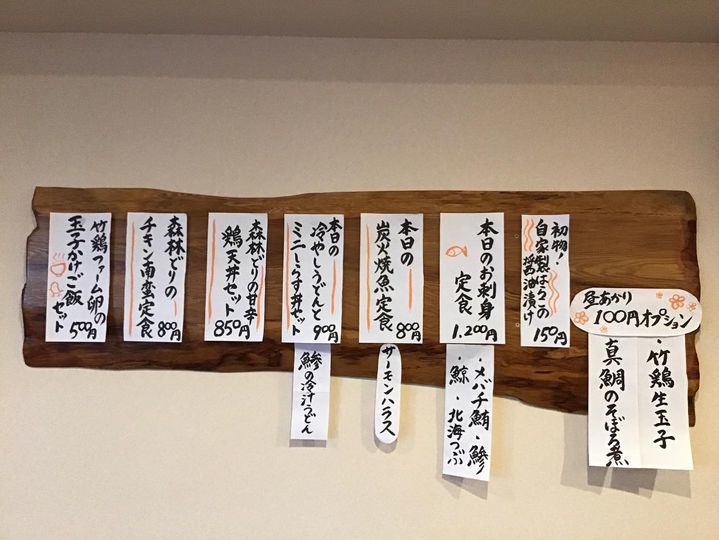 昼あかり
100円オプション
・竹鶏生玉子
真鯛のそぼろ煮
初物！
自家製はらこの
醤油漬け
150円
本日のお刺身
定食
1.200円
・メバチ鮪・鰺
・鯨・北海つぶ
本日の
炭火焼魚定食
800円
サーモンハラス
本日の
冷やしうどんと
ミニしらす丼セット
900円
鰺の冷汁うどん
森林どりの甘辛
鶏天丼セット
850円
森林どりの
チキン南蛮定食
800円
竹鶏ファーム卵の
玉子かけご飯
セット
500円